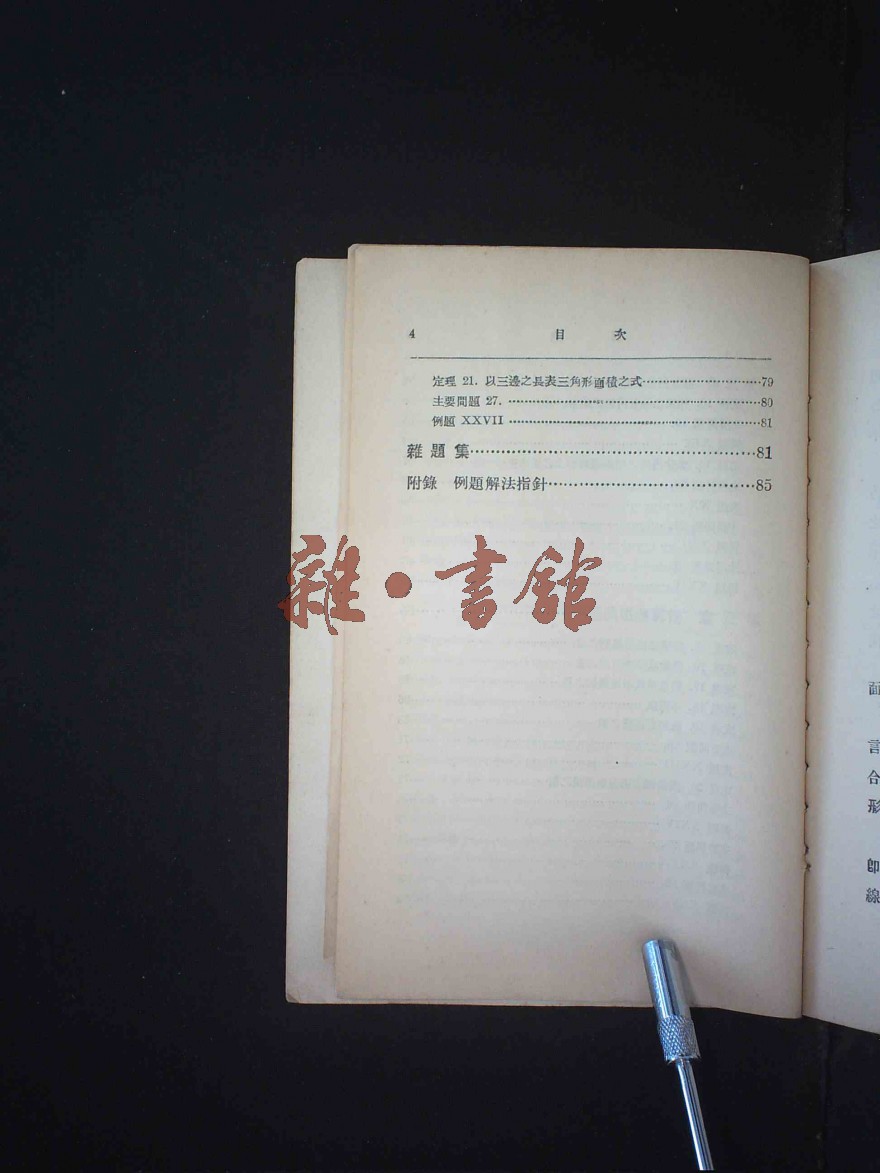 4 目 次
定理 21. 以三邊之長表三角形面積之式…………………………79
主要問題 27. …………………………………………………………80
例題 XXVII …………………………………………………………81
雜 題 集………………………………………………81
附錄 例題解法指針…………………………………85
雜·書館
面
言
合
形
卽
線